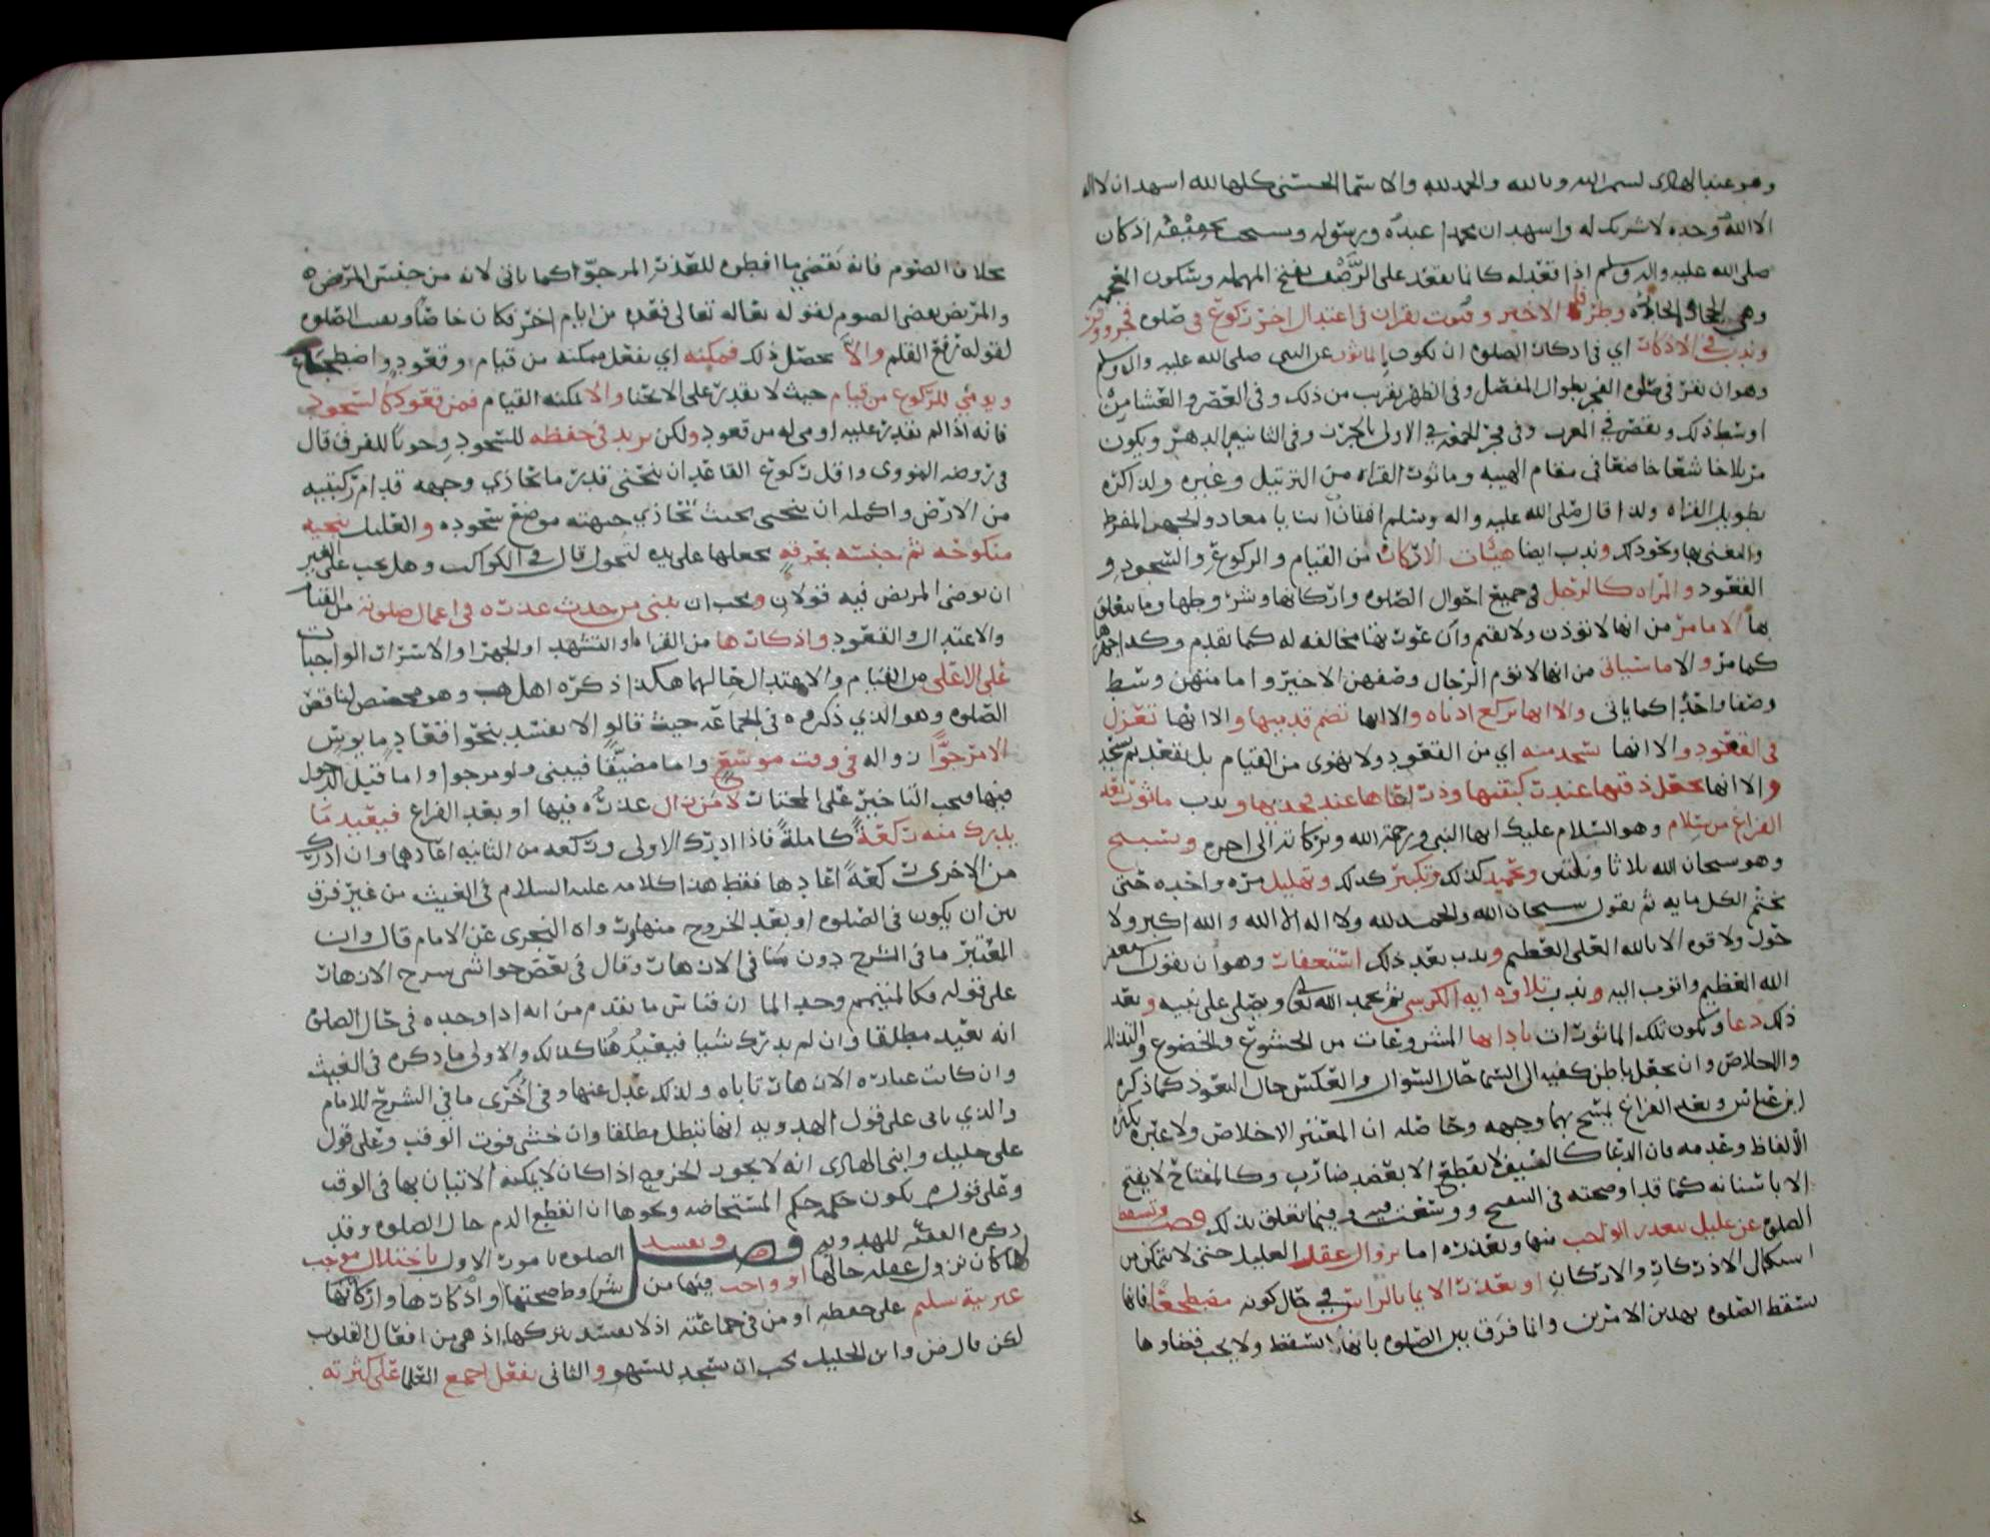 وهو عند الهادى بسم الله وبالله والحمد لله والاسما الحسنى كلها لله اسهد ان لا اله
الا الله وحده لا شريك له واسهد ان محمدا عبده ورسوله ويستحب تخفيفه اذ كان
صلى الله عليه واله وسلم اذا قعد له كانما يقعد على الرضف بفتح المهمله وسكون المعجمه
وهي الحجاره الحاره وطرفا الاخير وقنوت بقران فى اعتدال اخر ركوع فى صلوه فجر ووتر
وندب فى الاذكار اي فى اذكار الصلوه ان تكون بالماثور عن النبى صلى الله عليه واله وسلم
وهو ان يقرا فى صلوه الفجر بطوال المفصل وفى الظهر بقرب من ذلك وفى العصر والعشا من
اوسط ذلك وبقصره في المغرب وفى فجر الجمعه في الاولى بالجرز وفى الثانيه الدهر ويكون
مرتلا خاشعا خاضعا فى مقام الهيبه وماثور القراه من الترتيل وغيره ولذا كره
تطويل القراه ولذا قال صلى الله عليه واله وسلم افتان انت يا معاذ والجهر المفرط
والتغنى بها ونحو ذلك وندب ايضا هيئات الاركان من القيام والركوع والسجود و
القعود والمراه كالرجل فى جميع احوال الصلوه واركانها وشروطها وما يتعلق
بها الا ما مر من انها لا توذن ولا تقيم وان عورتها مخالفه له كما تقدم وكذا جهرها
كما مر والا ما سياتى من انها لا تؤم الرجال وصفهن الاخير وامامتهن وسط
وصفا واحدا كما ياتى والا انها تركع ادناه والا انها تضم قدميها والا انها تعزل
فى القعود والا انها تسجد منه اي من القعود ولا تهوى من القيام بل تقعد ثم تسجد
والا انها تجعل ذقنها عند ركبتيها وذراعاها عند فخذيها وندب ماثور بعد
الفراغ من سلام وهو السلام عليك ايها النبى ورحمة الله وبركاته الى اخره وتسبيح
وهو سبحان الله ثلاثا وثلثين وتحميد كذلك وتكبير كذلك وتهليل مره واحده حتى
يختم الكل مايه ثم يقول سبحان الله والحمد لله ولا اله الا الله والله اكبر ولا
حول ولا قوه الا بالله العلى العظيم وندب بعد ذلك استغفار وهو ان يقول استغفر
الله العظيم واتوب اليه وندب تلاوه ايه الكرسي ثم يحمد الله تعا ويصلى على نبيه وبعد
ذلك دعا وتكون تلك الماثورات بادابها المشروعات من الخشوع والخضوع والتذلل
والاخلاص وان يجعل باطن كفيه الى السما حال السوال والعكس حال التعوذ كما ذكره
ابن عباس وبعد الفراغ يمسح بهما وجهه وحاصله ان المعتبر الاخلاص ولا عبره بكثره
الالفاظ وعدمه فان الدعا كالسيف لا يقطع الا بعضد ضارب وكالمفتاح لا يفتح
الا باسنانه كما قد اوضحته فى السفيح ووسعت فيه وفيما يتعلق بذلك فصل وتسقط
الصلوة عن عليل بتعذر الواجب منها وتعذره اما بزوال عقله العليل حتى لا يتمكن من
استكمال الاذكار والاركان او بعذر الايما بالراس في حال كونه مضطجعا فانها
تسقط الصلوه بهذين الامرين وانما فرق بين الصلوه بانها تسقط ولا يجب قضاوها
بخلاف الصوم فانه يقضي ما افطره للعذر المرجو كما ياتى لانه من جنس المرض
والمريض يقضى الصوم لقوله تعالى فعده من ايام اخر فكان خاصا وبقيت الصلوه
لقوله رفع القلم والا يحصل ذلك فممكنه اي يفعل ممكنه من قيام وقعود واضطجاع
ويومي للركوع من قيام حيث لا يقدر على الانحنا والا يمكنه القيام فمن قعود كالسجود
فانه اذا لم يقدر عليه اومى له من قعود ولكن يزيد فى خفضه للسجود وجوبا للفرق قال
فى روضه النووى واقل ركوع القاعد ان ينحنى قدر ما يحاذي وجهه قدام ركبتيه
من الارض واكمله ان ينحنى بحيث تحاذي جبهته موضع سجوده والعليل ينجيه
منكوحه ثم جنسه بخرقه يجعلها على يده لتحول قال فى الكواكب وهل يجب على الغير
ان يوضى المريض فيه قولان ويجب ان يبنى من حدث عذره فى اعمال صلوته من القيام
والاعتدال والقعود واذكارها من القراه والتشهد او الجهر او الاسرار الواجبات
على الاعلى من القيام والاعتدال حالهما هكذا ذكره اهل هب وهو مخصص لناقص
الصلوه وهو الذي ذكروه فى الجماعه حيث قالو الا تفسد بنحو اقعاد مايوس
الا مرجوا زواله فى وقت موسع واما مضيقا فيبنى ولو مرجوا واما قبل الدخول
فيها فيجب التاخير على المختار لا من زال عذره فيها او بعد الفراغ فيعيد ما
يدرك منه ركعة كاملة فاذا ادرك الاولى وركعه من الثانيه اعادها وان ادرك
من الاخرى ركعة اعادها فقط هذا كلامه عليه السلام في الغيث من غير فرق
بين ان يكون فى الصلوه او بعد الخروج منها ورواه النجرى عن الامام قال وان
المعتبر ما فى الشرح دون ما فى الازهار وقال في بعض حواشى شرح الازهار
على قوله فكالمتيمم وجد الما ان قياس ما تقدم من انه اذا وجده فى حال الصلوة
انه يعيد مطلقا وان لم يدرك شيا فيعيد هنا كذلك والاولى ما ذكره فى الغيث
وان كانت عباره الازهار تاباه ولذلك عدل عنها وفى اخرى ما في الشرح للامام
والذي ياتى على قول الهدويه انها تبطل مطلقا وان خشى فوت الوقت وعلى قول
على خليل وابنى الهادى انه لا يجوز الخروج اذا كان لا يمكنه الاتيان بها فى الوقت
وعلى قوله يكون حكمه حكم المستحاضه ونحوها ان انقطع الدم حال الصلوه وقد
ذكره الفقيه للهدويه فصل وتفسد الصلوه بامور الاول باختلال موجب
كما كان بزول عقله حالها او واجب فيها من شروط صحتها او اذكارها واركانها
غير نية سليم على حفظه او من فى جماعته اذ لا تفسد بتركها اذ هى من افعال القلوب
لكن قال ض وابن الخليل يجب ان يسجد للسهو والثانى بفعل اجمع العلما على كثرته